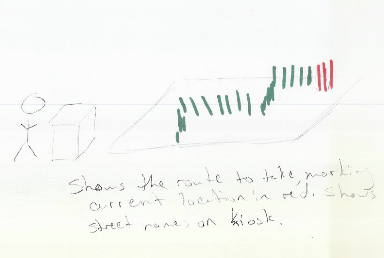 Shows the route to take, marking
current location in red. Shows
street names on kiosk.